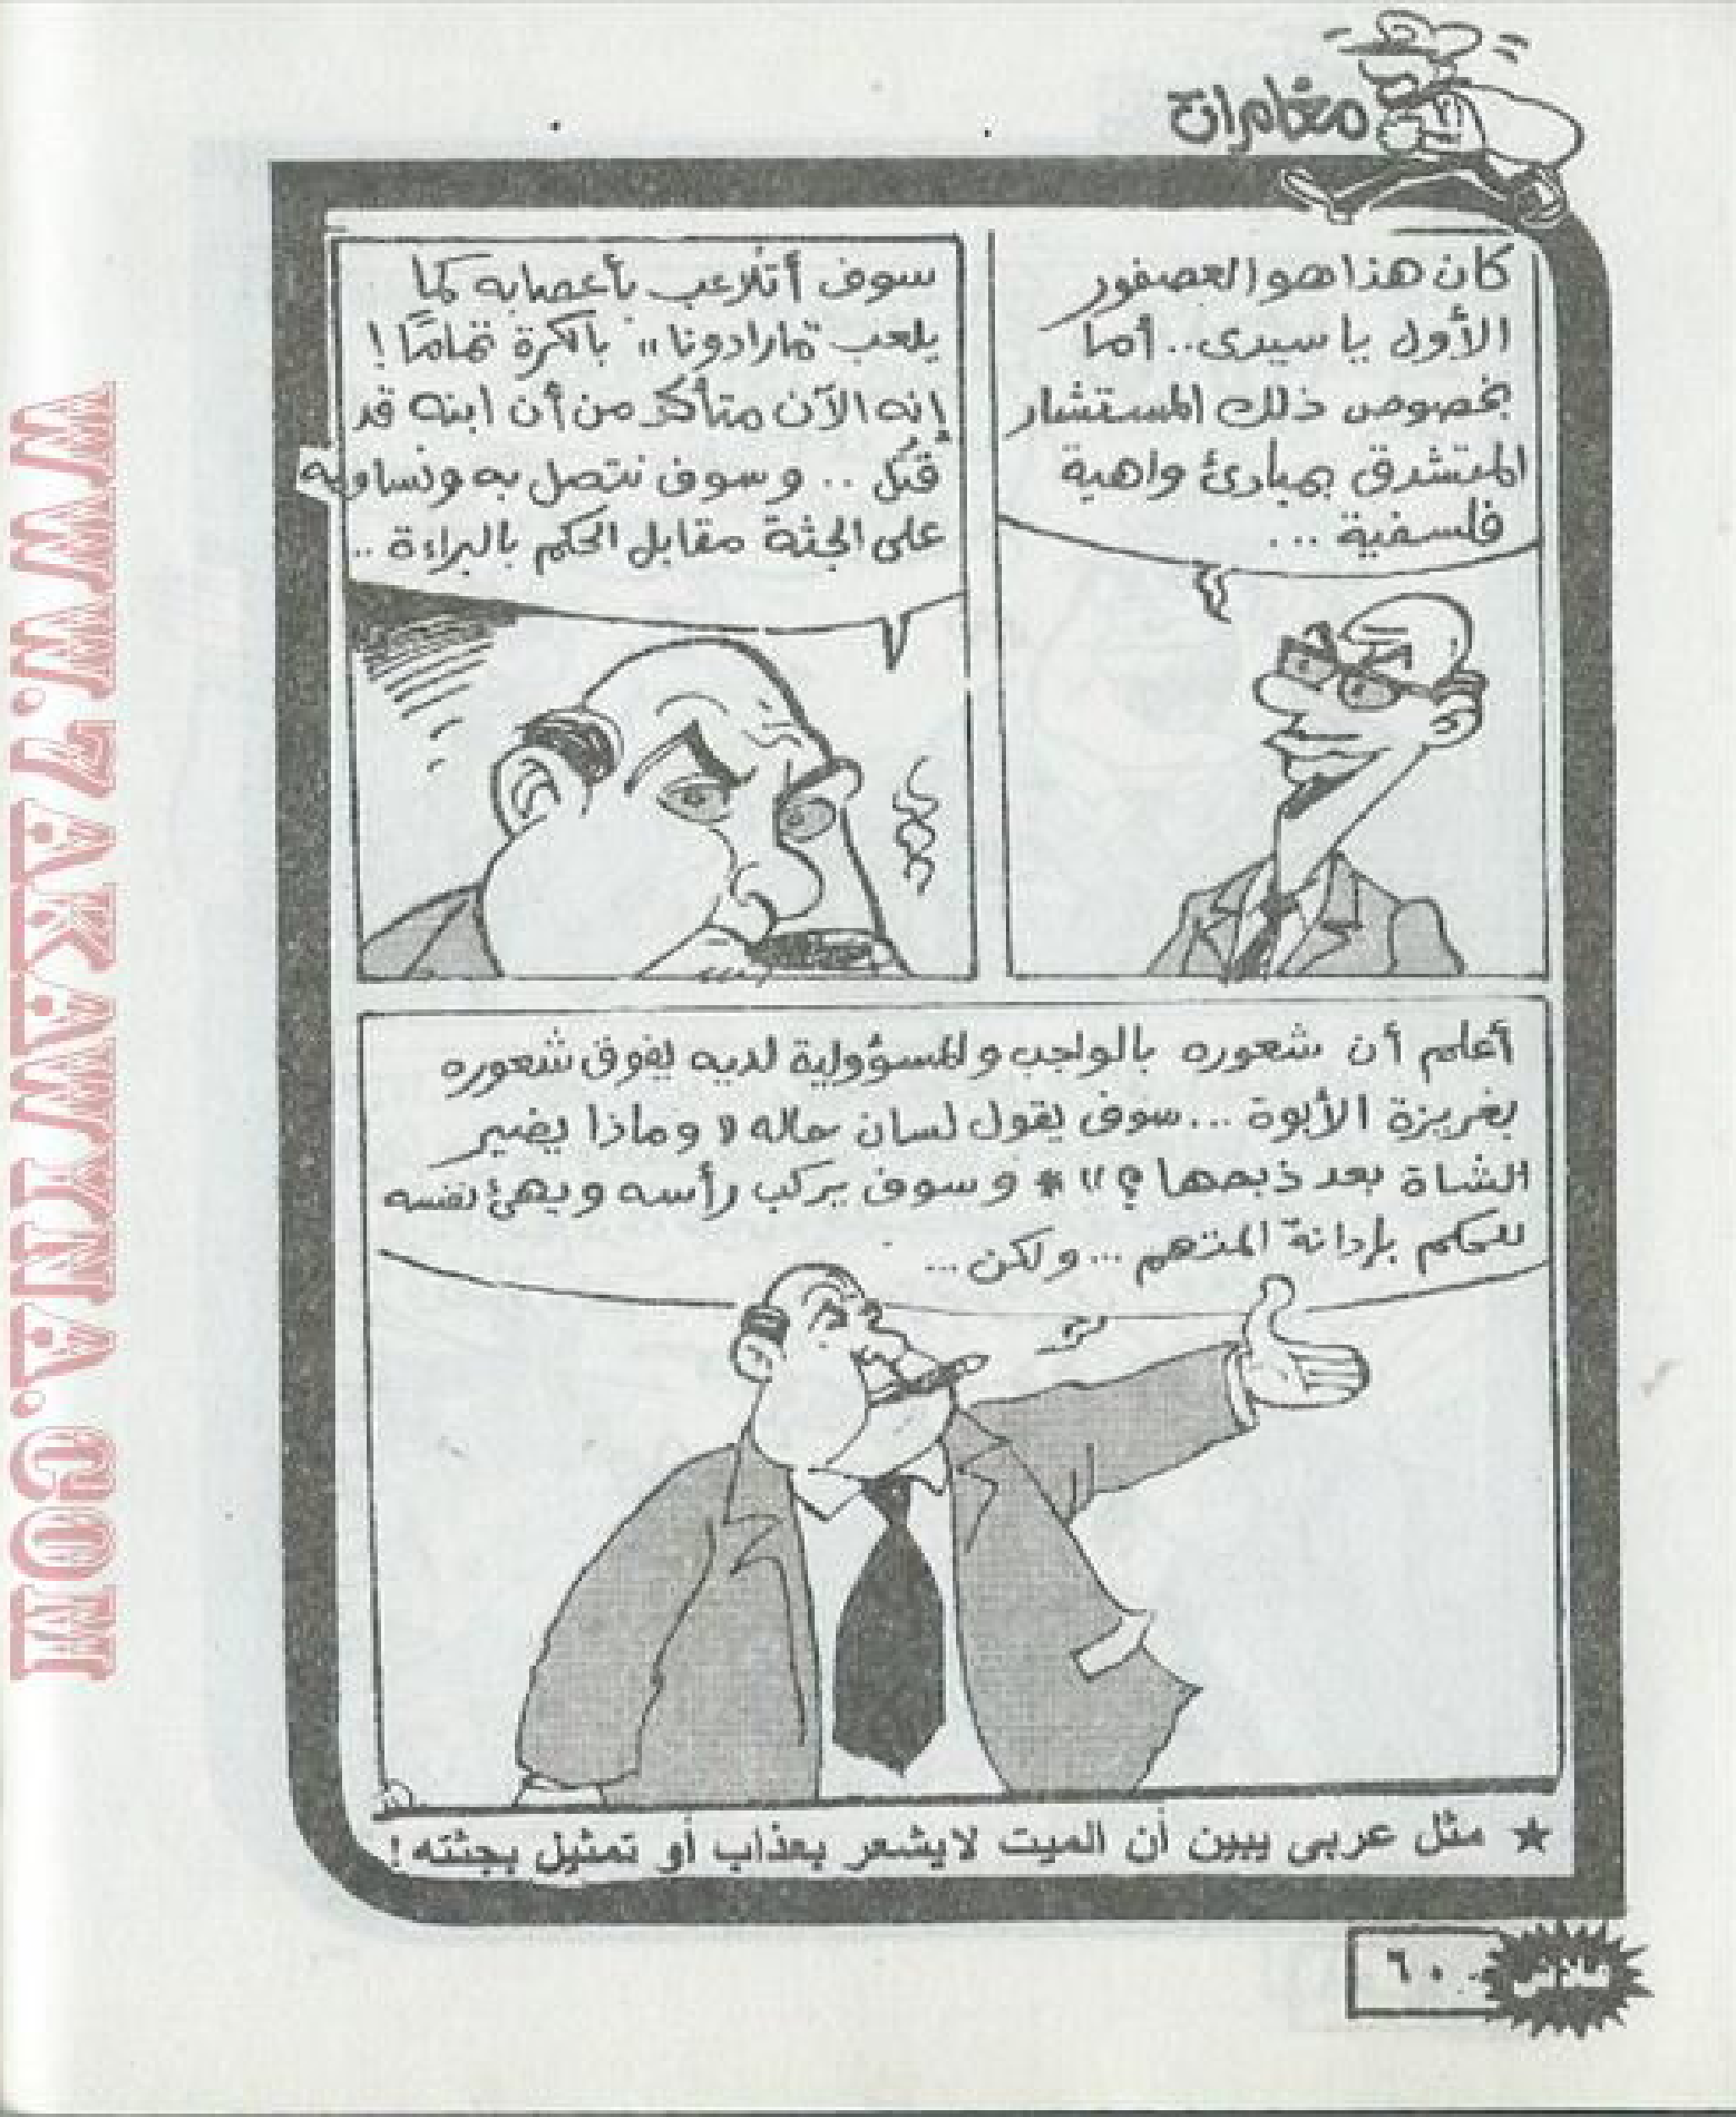 مغامرات
كان هذا هو العصفور
الأول يا سيدى.. أما
بخصوص ذلك المستشار
المتشدق بمبادئ واهية
فلسفية ...
سوف أتلاعب بأعصابه كما
يلعب "مارادونا" بالكرة تمامًا !
إنه الآن متأكد من أن ابنه قد
قُتل .. وسوف نتصل به ونساومه
على الجثة مقابل الحكم بالبراءة ..
أعلم أن شعوره بالواجب والمسؤولية لديه يفوق شعوره
بغريزة الأبوة ... سوف يقول لسان حاله « وماذا يضير
الشاة بعد ذبحها ؟ » * وسوف يركب رأسه ويهئ نفسه
للحكم بإدانة المتهم ... ولكن ...
★ مثل عربى يبين أن الميت لايشعر بعذاب أو تمثيل بجثته !
فلاش ٦٠
WWW.7AKAWITNA.COM